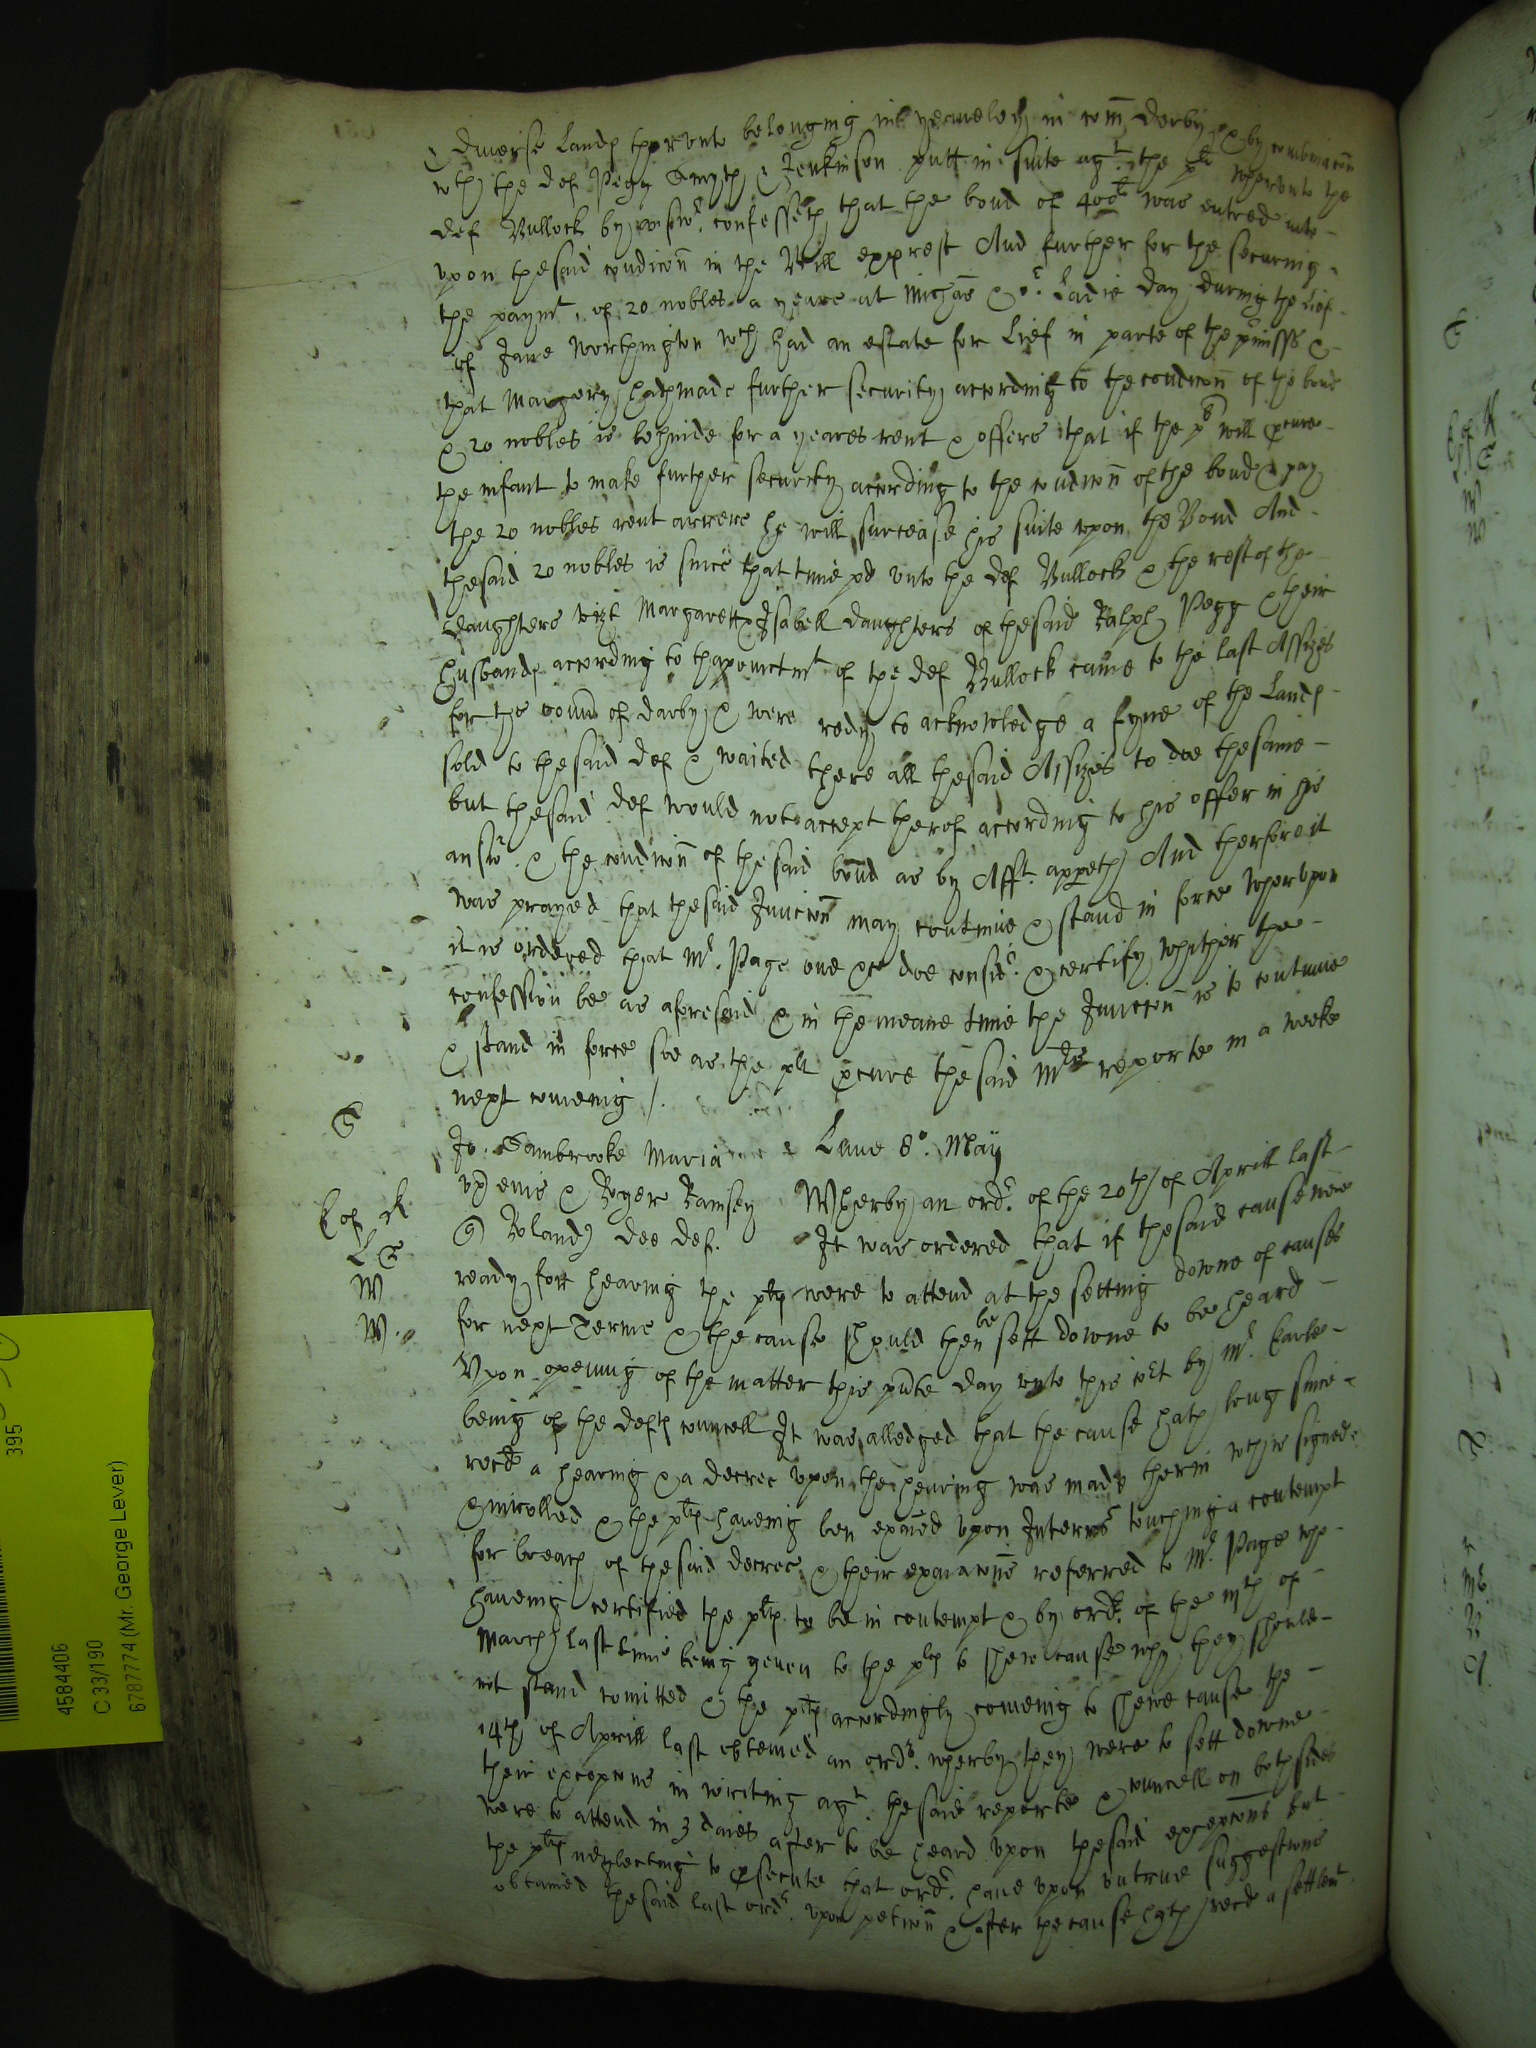 & diverse Lands therunto belonging in Yeaveley in com Derby & by combinacon
wth the def Pegg Smyth & Jenkinson putt in suite agt. the plt wherunto the
def Bullock by answr. confesseth that the bond of 400li was entred into
upon thesaid condicon in the Bill exprest And further for the securing
the paymt. of 20 nobles a yeare at Michas & or. Ladie day during the Lief
of Jane Worthington wch had an estate for Lief in parte of the pmisss &
that Margery hath made further security according to the condicon of the bond
& 20 nobles is behinde for a yeares rent & offers that if the plt will pcure
the infant to make further security according to the condicon of the bond & pay
the 20 nobles rent arrere he will surcease his suite upon the Bond And
thesaid 20 nobles is since that time pd unto the def Bullock & the rest of the
daughters vizt Margarett & Isabell daughters of thesaid Ralph Pegg & their
husbands according to thapointmt of the def Bullock came to the last Assizes
for the county of Darby & were redy to acknowledge a fyne of the Lands
sold to thesaid def & waited there all thesaid Assizes to doe thesame
but thesaid def would not accept therof according to his offer in his
answr. & the condicon of the said bond as by Afft. appeth And therfore it
was prayed that thesaid Junccon may continue & stand in force Wherupon
it is ordered that Mr. Page one &c doe considr. & certify whither the
confession be as aforesaid & in the meane time the Junccon is to continue
& stand in force soe as the plt pcure thesaid Mrs reporte in a weeke
next comeing /.
S
Jo. Sambrooke Maria
Lune 8o. Maij
uxr eius & Roger Ramsey
Wherby an ordr. of the 20th of Aprill last
Rowland Dee def.
It was ordered that if thesaid cause were
ready for hearing the plts were to attend at the setting downe of causes
for next Terme & the cause should then be sett downe to be heard
Upon opening of the matter this pnte day unto this cort by Mr. Earle
being of the defts councell It was alledged that the cause hath long since
recd a hearing & a decree upon the hearing was made therin wch is signed
& inrolled & the plts haveing ben exaied upon Interrs touching a contempt
for breach of thesaid decree & their exaiacons referred to Mr. Page who
haveing certified the plts to be in contempt & by ordr. of the th of
March last time being geven to the plts to shew cause why they should
not stand comitted & the plts accordingly comeing to shewe cause the
14th of Aprill last obteined an ordr. wherby they were to sett downe
their excepcons in writing agt. thesaid reporte & councell on both sides
were to attend in 3 daies after to be heard upon thesaid excepcons but
the plts neglecting to psecute that ordr. have upon untrue suggestions
obtained thesaid last ordr. upon peticon & after the cause hath recd a settlemt
395
4584406
C 33/190
6787774 (Mr. George Lever)